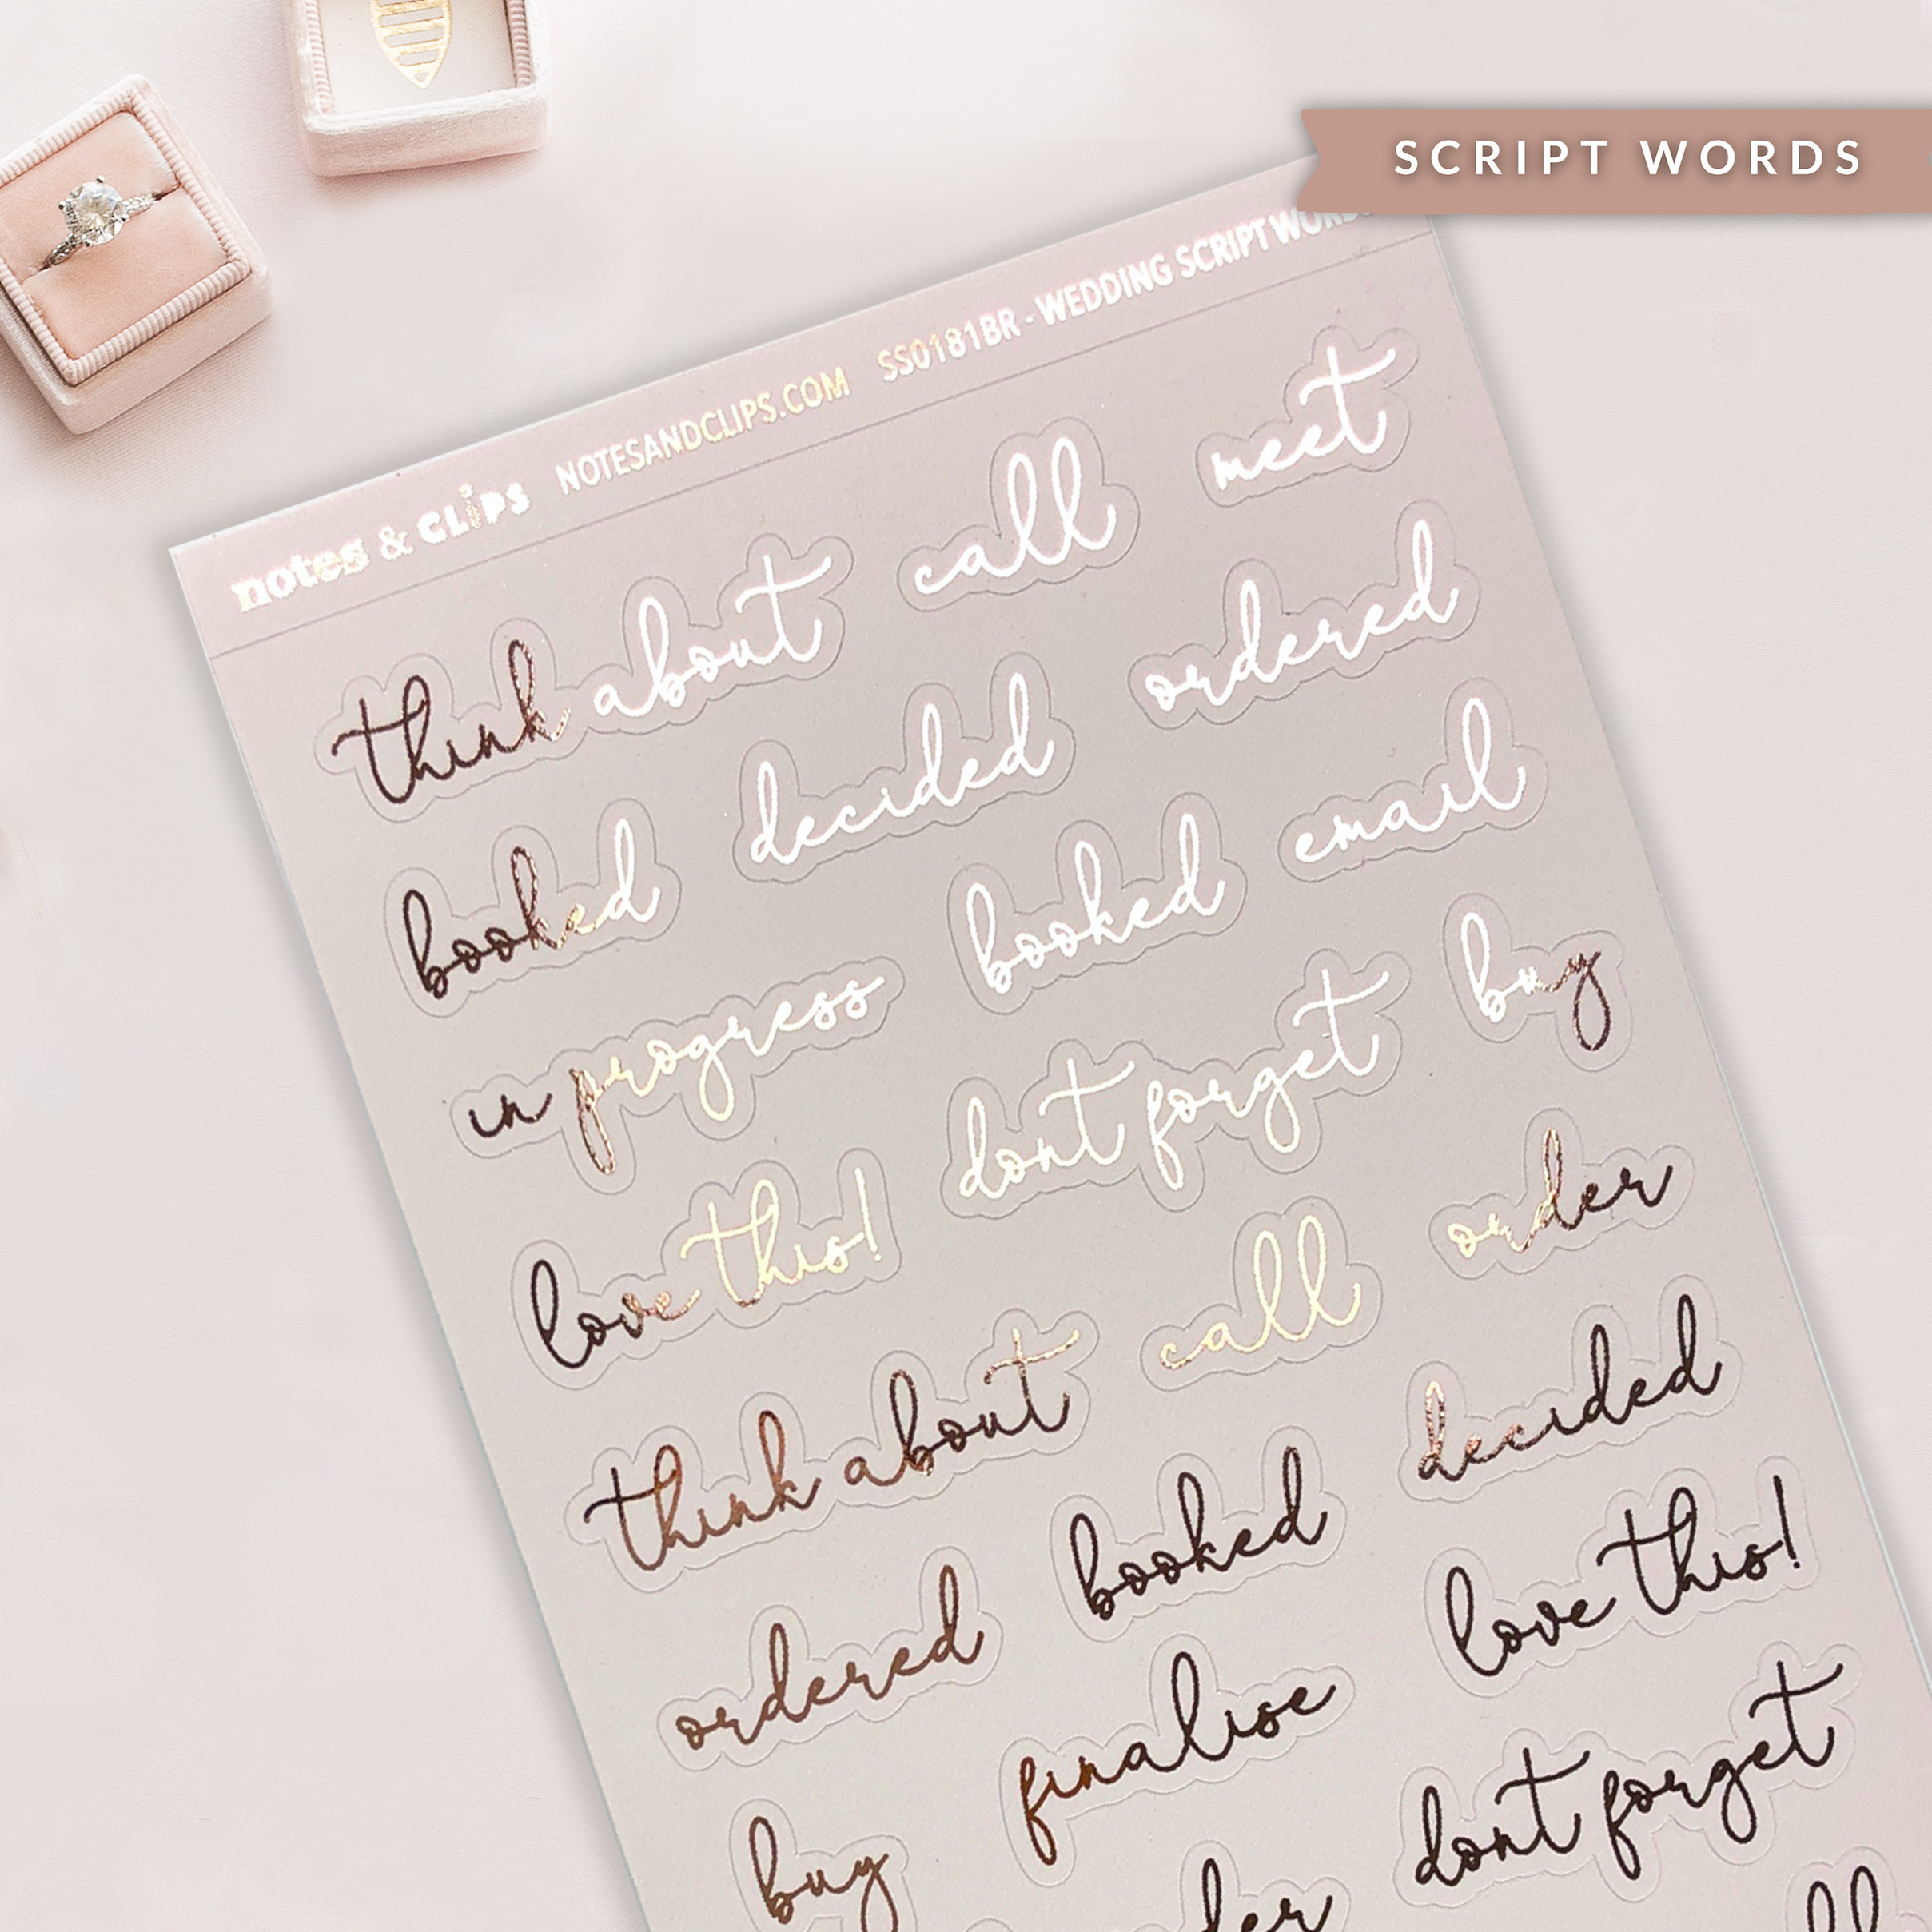 SCRIPT WORDS
notes & CLiPS NOTESANDCLIPS.COM SS0181BR - WEDDING SCRIPT WORDS
think about call meet
booked decided ordered
in progress booked email
love this! dont forget buy
think about call order
ordered booked decided
buy finalise love this!
dont forget